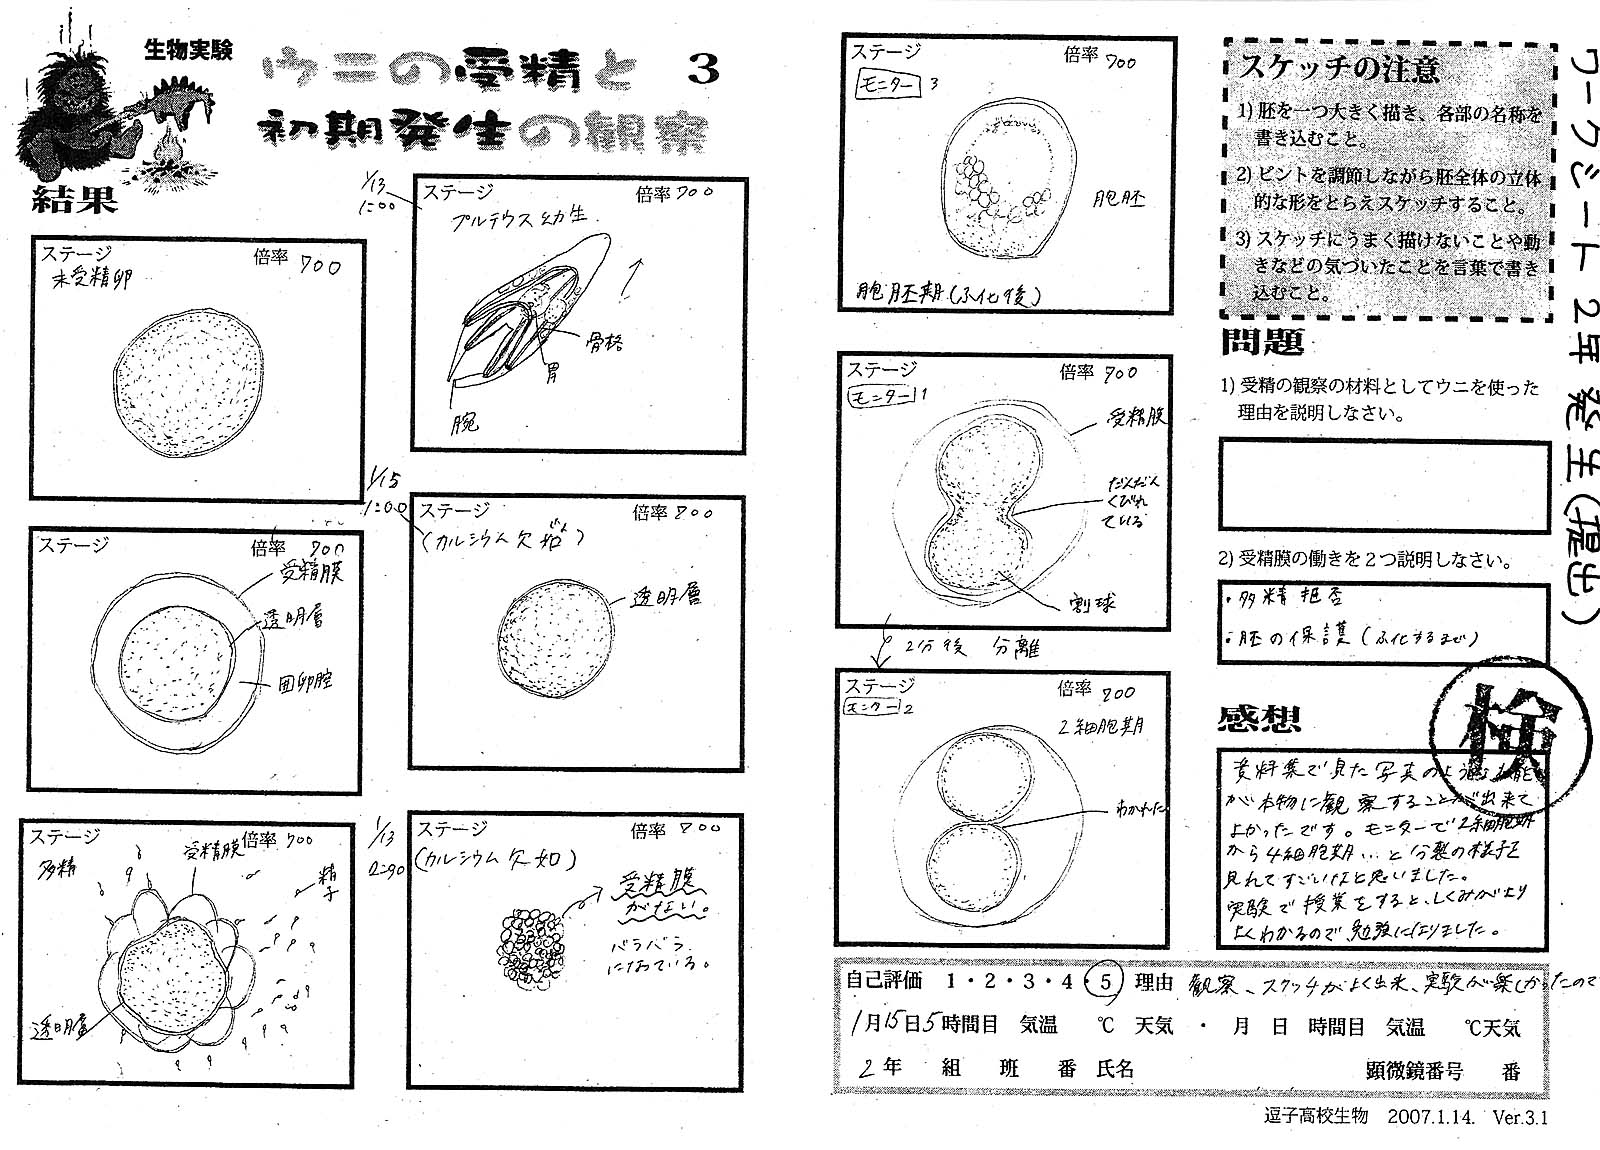 生物実験
ウニの受精と 3
初期発生の観察
結果
ステージ 倍率 700
未受精卵
ステージ 倍率 700
受精膜
透明層
囲卵腔
ステージ 倍率 700
多精
受精膜
精子
透明層
1/13
1:00
ステージ 倍率 700
プルテウス幼生
骨格
胃
腕
1/15
1:00
ステージ 倍率 800
(カルシウム欠如)
透明層
1/13
ステージ 倍率 800
(カルシウム欠如)
受精膜
がない。
バラバラ
になっている。
ステージ 倍率 700
モニター 3
胞胚
胞胚期(ふ化後)
ステージ 倍率 700
モニター 1
受精膜
だんだん
くびれ
ている
割球
2分後 分離
ステージ 倍率 800
モニター 2
2細胞期
わかれた
スケッチの注意
1) 胚を一つ大きく描き、各部の名称を
書き込むこと。
2) ピントを調節しながら胚全体の立体
的な形をとらえスケッチすること。
3) スケッチにうまく描けないことや動
きなどの気づいたことを言葉で書き
込むこと。
問題
1) 受精の観察の材料としてウニを使った
理由を説明しなさい。
2) 受精膜の働きを2つ説明しなさい。
・多精拒否
・胚の保護(ふ化するまで)
検
感想
資料集で見た写真のような
が本物に観察することが出来て
よかったです。モニターで2細胞期
から4細胞期…と分裂の様子を
見れてすごいなと思いました。
実験で授業をすると、しくみがより
よくわかるので勉強になりました。
自己評価 1・2・3・4・5 理由 観察、スケッチがよく出来、実験が楽しかったので
1月15日5時間目 気温 ℃ 天気 ・ 月 日 時間目 気温 ℃天気
2年 組 班 番 氏名 顕微鏡番号 番
逗子高校生物 2007.1.14. Ver.3.1
ワークシート 2年 発生(提出)